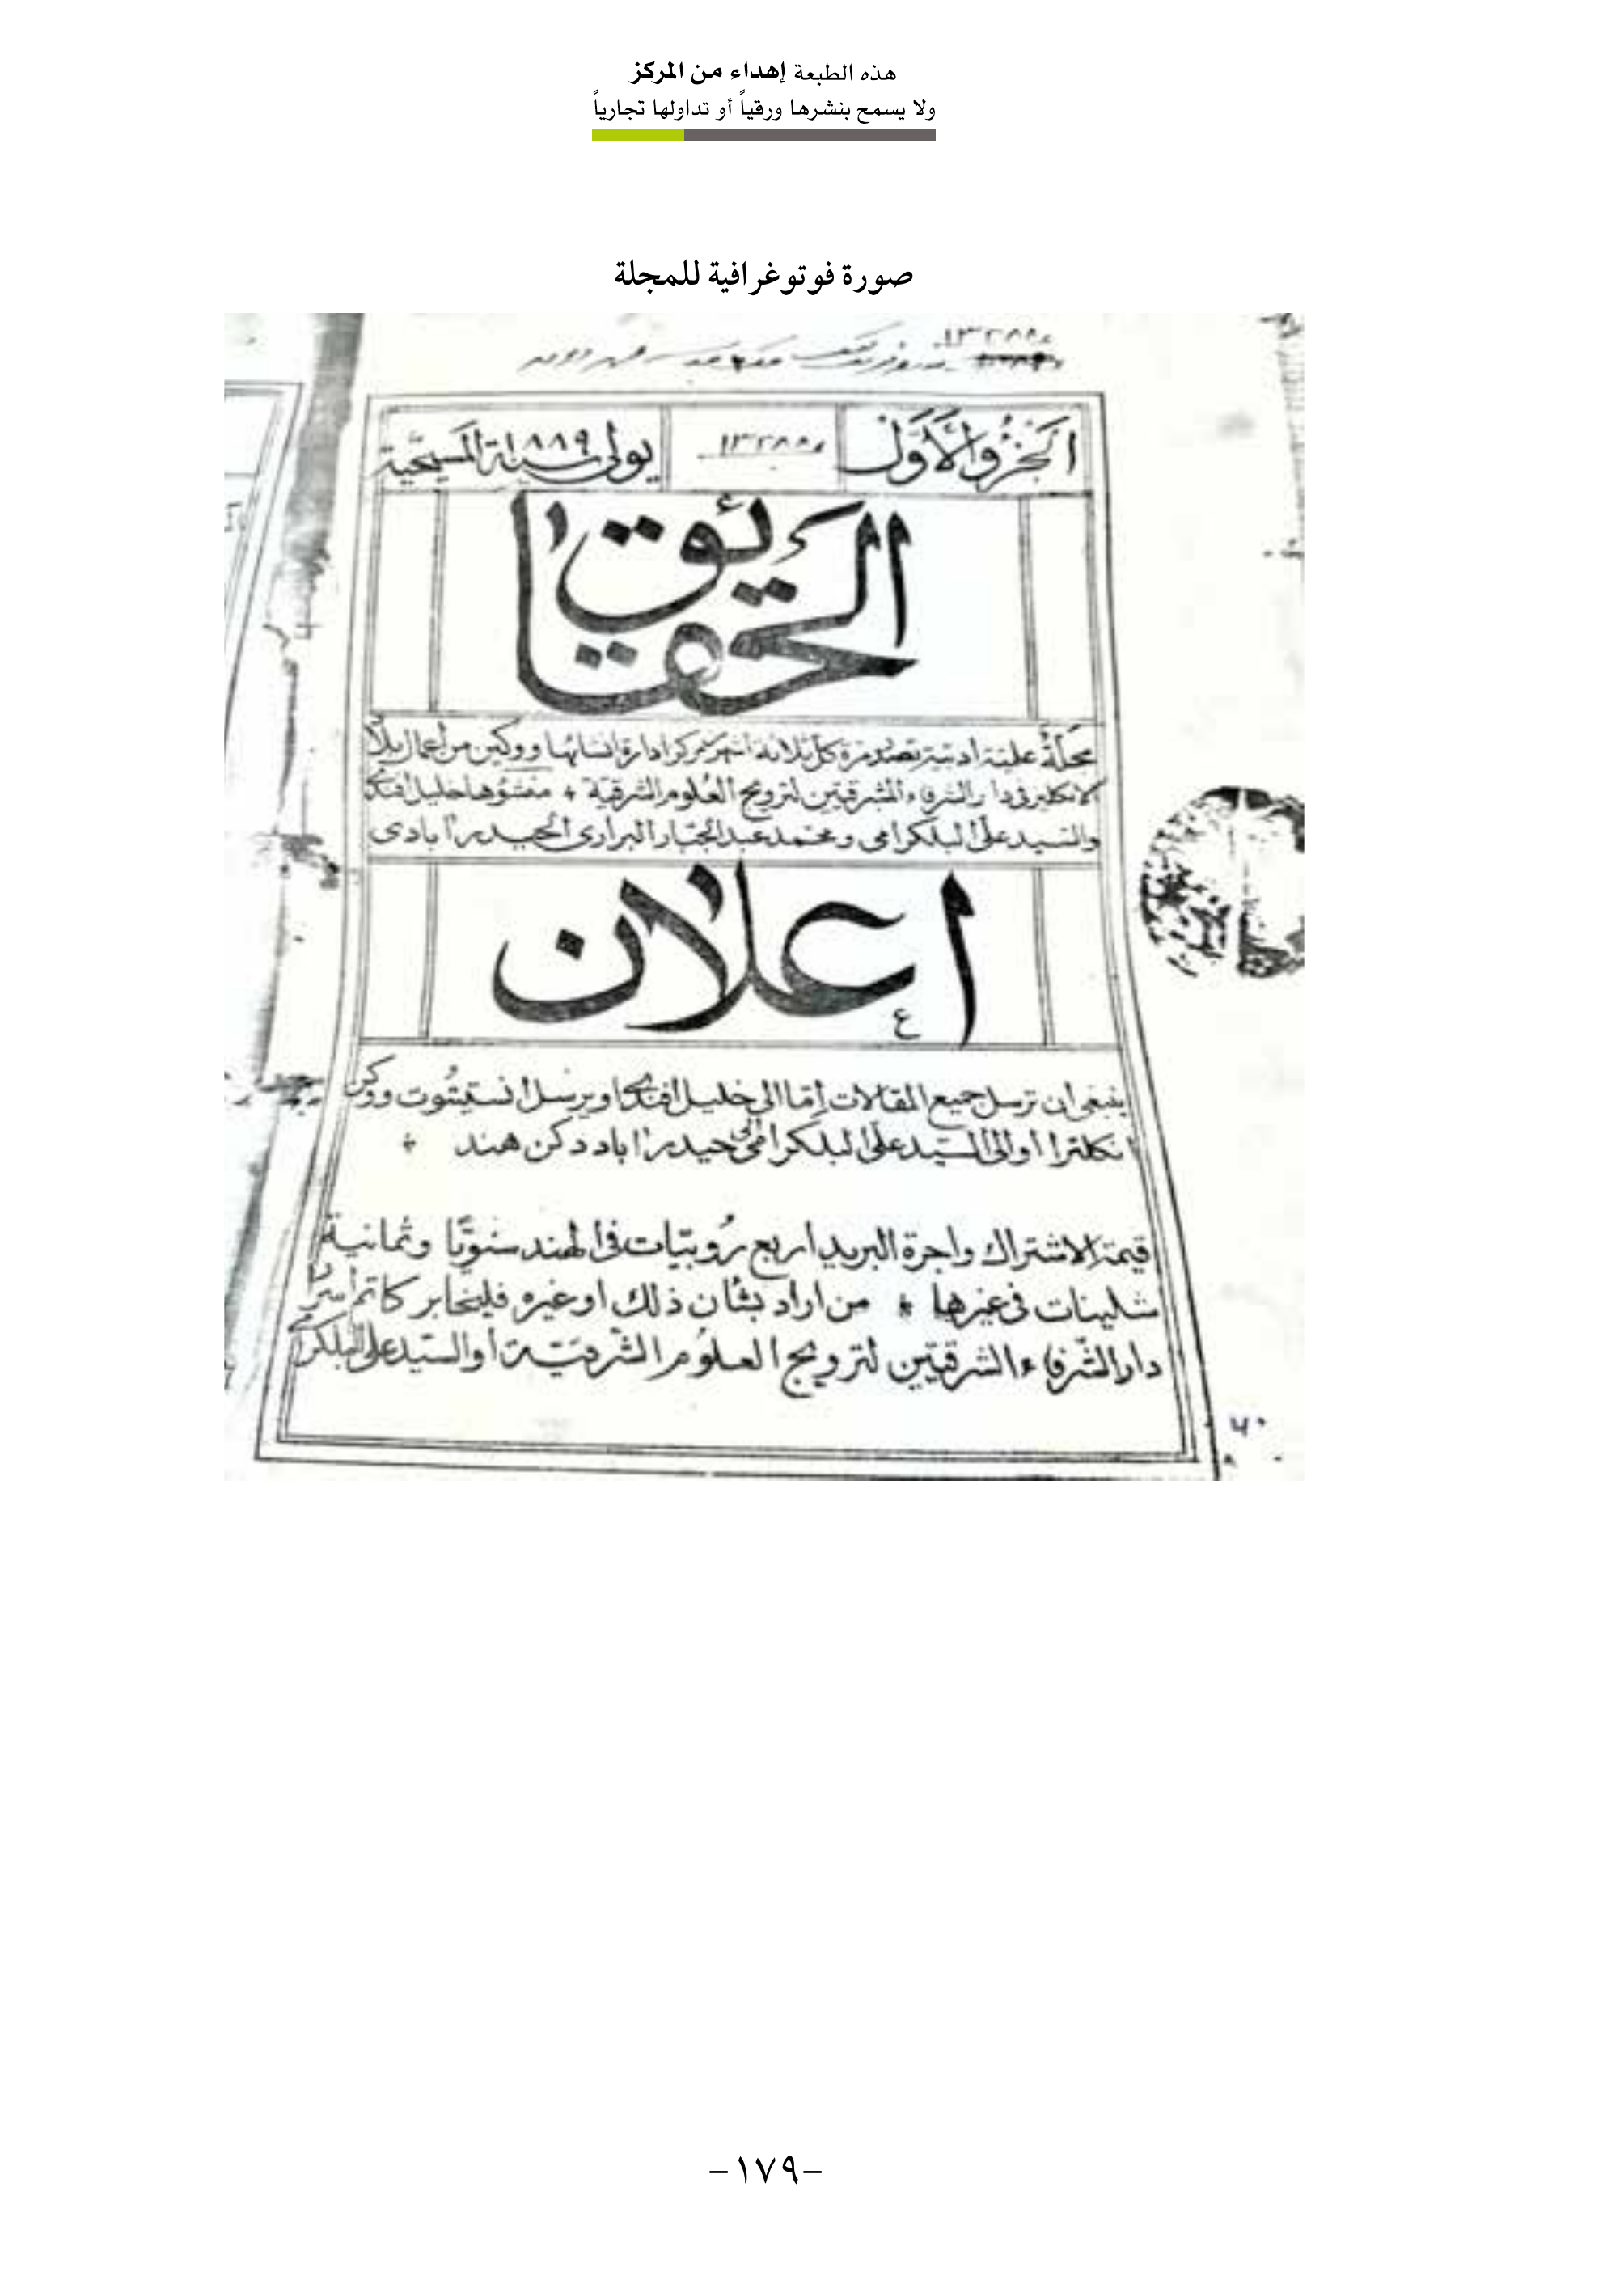 هذه الطبعة إهداء من المركز
ولا يسمح بنشرها ورقياً أو تداولها تجارياً
صورة فوتوغرافية للمجلة
الجزؤ الأوّل
يولى سنة ١٨٨٩ المسيحيّة
الحقائق
مجلّة علميّة ادبيّة تصدر مرة كل ثلاثة اشهر مركز ادارة انشائها ووكين من اعمال بلاد
الانكليز فى دار الشرفاء المشرقيّين لترويج العلوم الشرقية * منشؤها خليل افندى
والسيد على البلكرامى ومحمد عبد الجبّار البرارى الحيدرآبادى
اعلان
ينبغى ان ترسل جميع المقالات إمّا الى خليل افندى اويرنسل انستيتُوت ووكن
انكلترا أو الى السيد على البلكرامى الى حيدرآباد دكن هند *
قيمة الاشتراك واجرة البريد اربع رُوبيّات فى الهند سنويّا وثمانية
شلينات فى غيرها * من اراد بشان ذلك او غيره فليخابر كاتم اسرار
دار الشّرفاء الشرقيّين لترويج العلوم الشرقيّة أو السيّد على البلكرامى
-١٧٩-